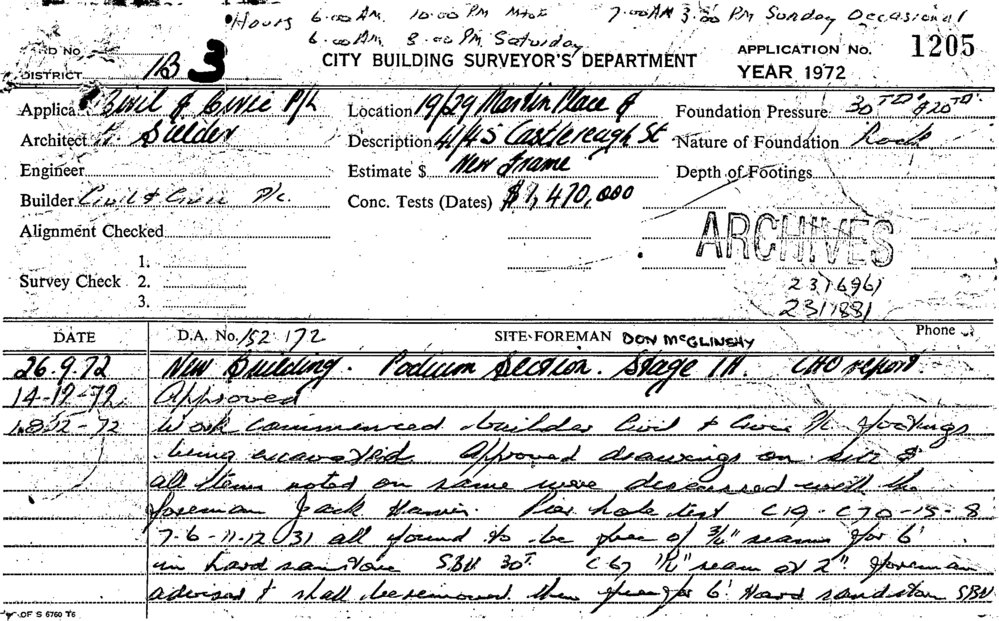 Hours 6.00 AM. 10.00 PM M to F 7.00 AM 3.00 PM Sunday Occasional
6.00 AM. 8.00 PM. Saturday
CITY BUILDING SURVEYOR'S DEPARTMENT
APPLICATION No. 1205
YEAR 1972
RD NO
DISTRICT 1B 3
Applica Civil & Civic P/L
Location 19/29 Martin Place &
Foundation Pressure 30 & 20
Architect H. Sielder
Description 41/45 Castlereagh St
Nature of Foundation Rock
Engineer
Estimate $ New Frame
Depth of Footings
Builder Civil & Civic P/L.
Conc. Tests (Dates) $1,470,000
Alignment Checked
ARCHIVES
1.
Survey Check 2.
3.
23/6961
23/1881
DATE
D.A. No. 152 172
SITE FOREMAN DON McGLINSHY
Phone
26.9.72 New Building. Podium Section. Stage 1A. CHO report.
14-12-72 Approved
18-12-72 Work commenced builder Civil & Civic P/L footings
being excavated. Approved drawings on site &
all items noted on same were discussed with the
foreman Jack Pier hole test C19-C70-15-8
7-6-11-12 31 all found to be free of 3/4" seams for 6'
in hard sandstone SBV 30T. C67 1/4" seam at 2" foreman
advised & shall be removed then free for 6' Hard sandstone SBV
OF S 6760 T6